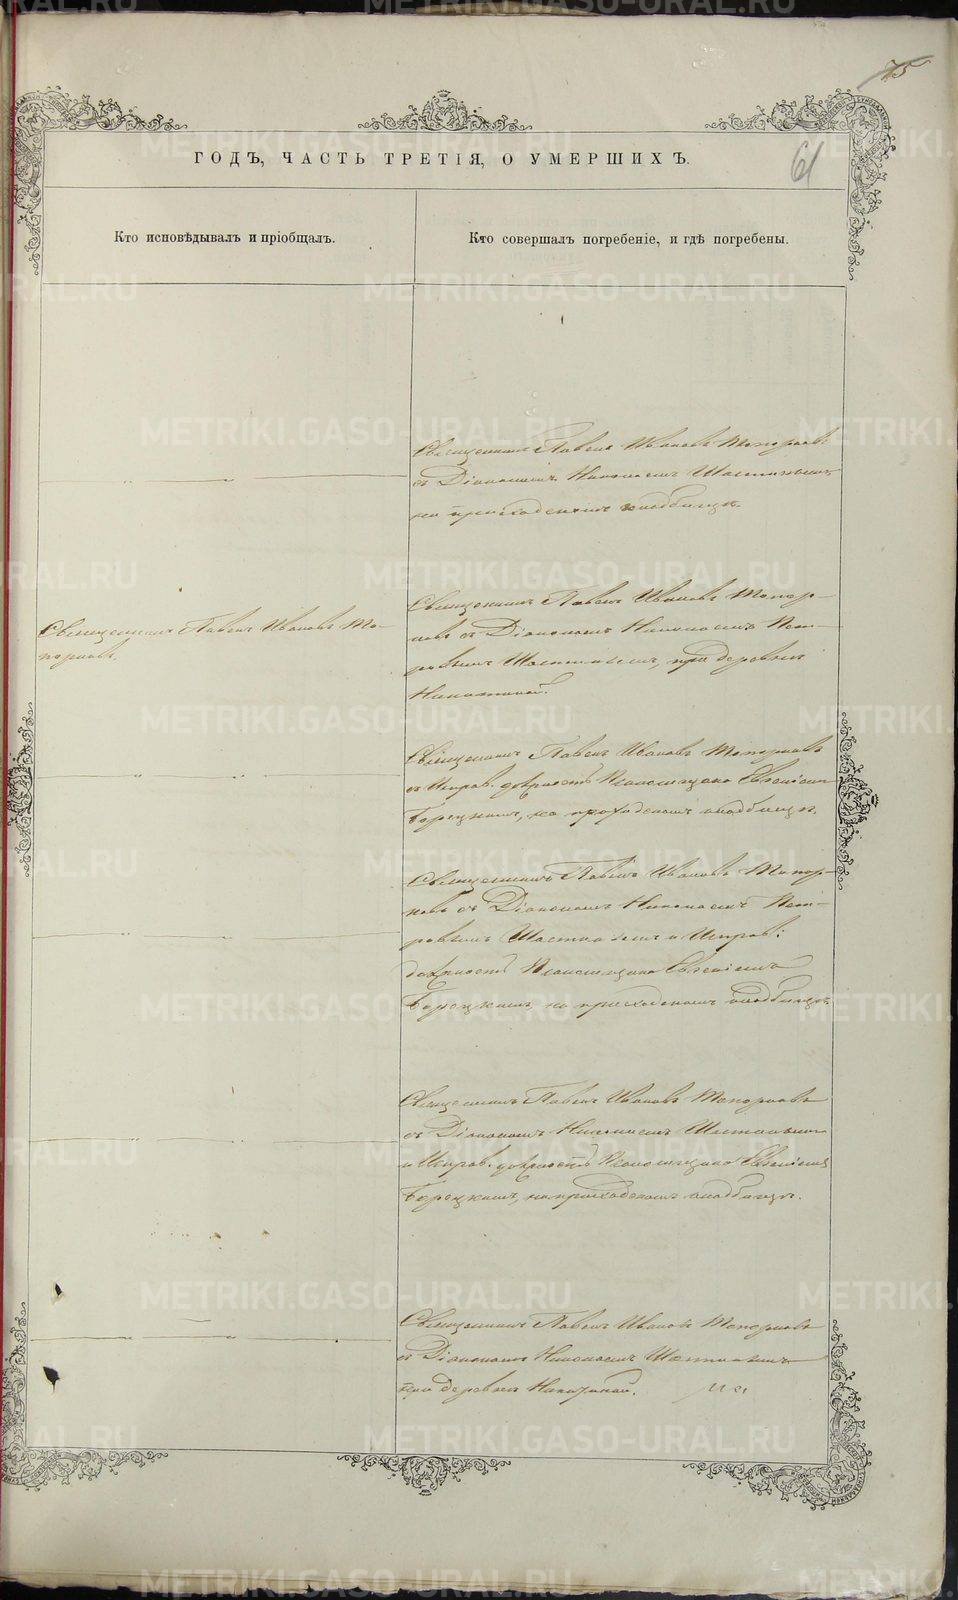 75
61
ГОДЪ, ЧАСТЬ ТРЕТІЯ, О УМЕРШИХЪ.
Кто исповѣдывалъ и пріобщалъ.
Кто совершалъ погребеніе, и гдѣ погребены.
Священникъ Павелъ Ивановъ Топорковъ
съ Діакономъ Николаемъ
на приходскомъ кладбищѣ.
Священникъ Павелъ Ивановъ То-
порковъ.
Священникъ Павелъ Ивановъ Топор-
ковъ съ Діакономъ Николаемъ Пет-
ровымъ при деревнѣ
Священникъ Павелъ Ивановъ Топорковъ
съ Исправ. должность Псаломщика Евгеніемъ
на приходскомъ кладбищѣ.
Священникъ Павелъ Ивановъ Топор-
ковъ съ Діакономъ Николаемъ Пет-
ровымъ и Исправ:
должность Псаломщика Евгеніемъ
на приходскомъ кладбищѣ.
Священникъ Павелъ Ивановъ Топорковъ
съ Діакономъ Николаемъ
и Исправ. должность Псаломщика Евгеніемъ
на приходскомъ кладбищѣ.
Священникъ Павелъ Ивановъ Топорковъ
съ Діакономъ Николаемъ
при деревнѣ
METRIKI.GASO-URAL.RU